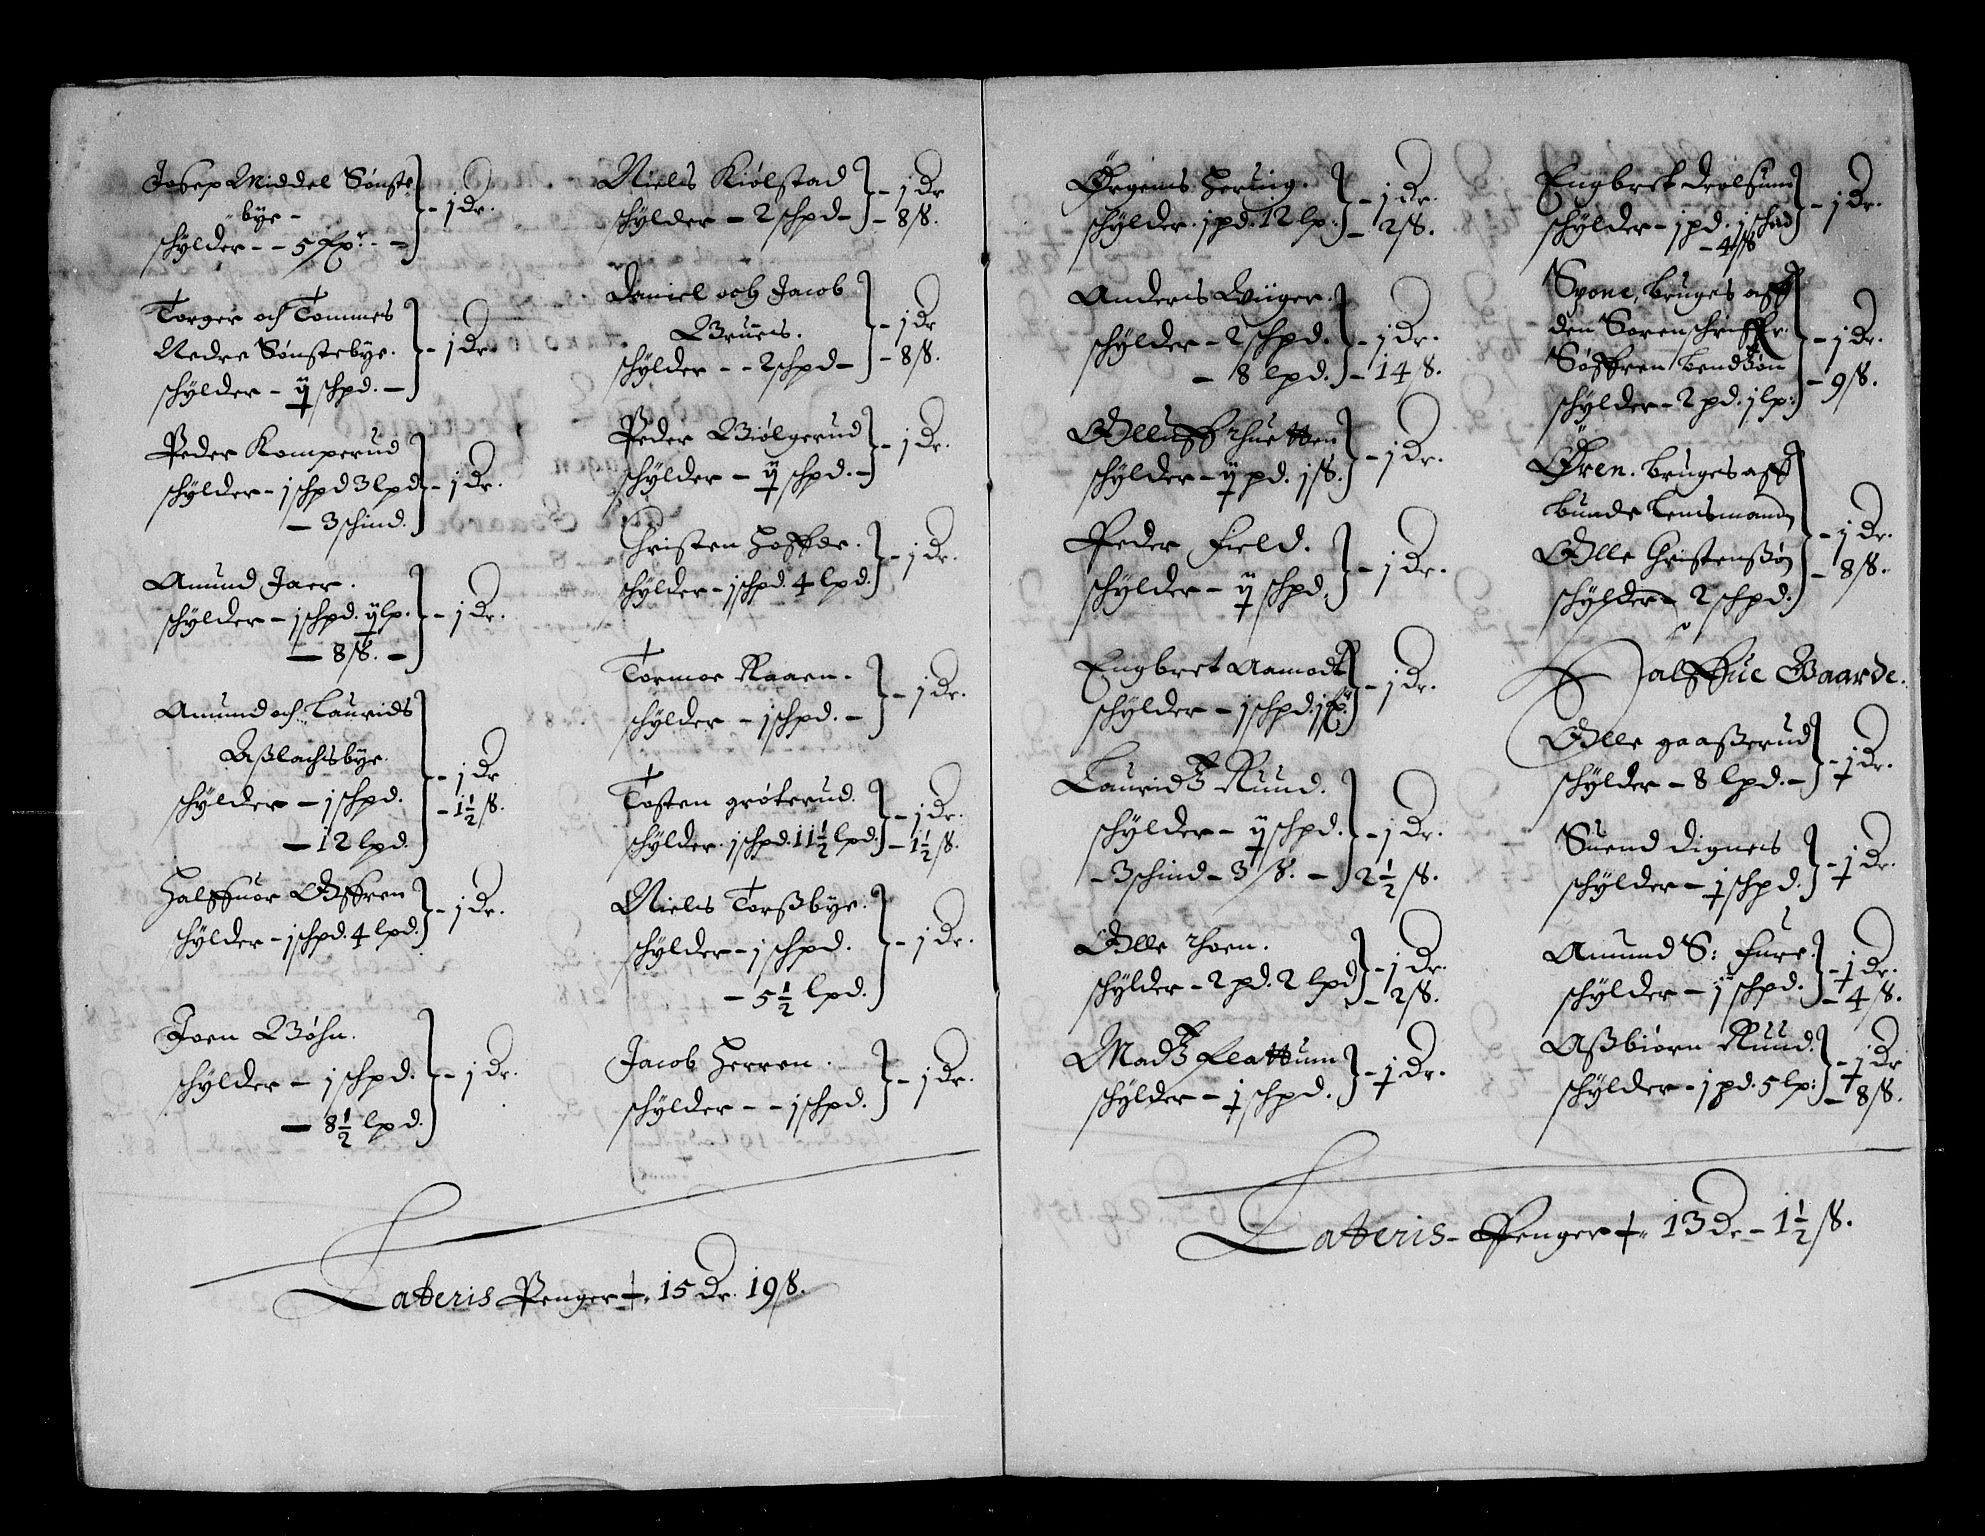 Josep Middel Sønste
bye -
schÿlder - - 5 fxr - - } - 1 Dr.
Torger och Tommes
Nedre Sønstebye.
schÿlder - ÿ schpd. - } - 1 Dr.
Peder Komperud
schÿlder - j schpd 3 lpd
- 3 schind. } - 1 Dr.
Amund Jaer.
schÿlder - j schpd. ÿ lp.
- 8 ß. - } - 1 Dr.
Amund och Laurids
Aßlachsbye.
schÿlder - j schpd.
- 12 lpd. } - 1 Dr - 1½ ß.
Halffuor Offren
schÿlder - j schpd. 4 lpd. } - 1 Dr.
Joen Bøhn.
schÿlder - j schpd.
- 8½ lpd. } - 1 Dr.
Niels Kiølstad
schÿlder - 2 schpd - } - 1 Dr - 8 ß.
Daniel och Jacob
Bruens.
schÿlder - - 2 schpd - } - 1 Dr - 8 ß.
Peder Biølgerud
schÿlder - ÿ schpd. - } - 1 Dr.
Christen Hoffde.
schÿlder - j schpd. 4 lpd. } - 1 Dr.
Tormoe Raaen.
schÿlder - j schpd. - } - 1 Dr.
Tosten grøterud.
schÿlder. j schpd. 11½ lpd. } - 1 Dr. - 1½ ß.
Niels Torßbye.
schÿlder - j schpd.
- 5½ lpd. } - 1 Dr.
Jacob Herren.
schÿlder - - j schpd. } - 1 Dr.
Lateris Penger - 15 Dr. 19 ß.
Ørgens Hering.
schÿlder. j pd. 12 lp. } - 1 Dr. - 2 ß.
Anders Wiiger.
schÿlder - 2 schpd.
- 8 lpd. } - 1 Dr. - 14 ß.
Olluff Thuetten
schÿlder - ÿ pd. j ß. } - 1 Dr.
Peder Field.
schÿlder - ÿ schpd. } - 1 Dr.
Engbret Aamodt
schÿlder - j schpd. j fx. } - 1 Dr.
Lauridtz Ruud.
schÿlder - ÿ schpd.
- 3 schind - 3 ß. - } - 1 Dr. 2½ ß.
Olle Thoen.
schÿlder - 2 pd. 2 lpd } - 1 Dr. - 2 ß.
Madtz Flattum
schÿlder - j schpd. } - j Dr.
Engbret Drolsum
schÿlder - j pd. j schad
- 4 ß } - 1 Dr.
Spone, bruges aff
den Sorenschriffr.
Søffren bendtzøn
schÿlder - 2 pd. j lp: } - 1 Dr. - 9 ß.
Øren. bruges aff
bunde Lensmand
Olle Christenßøn
schÿlder - 2 schpd. } - 1 Dr. - 8 ß.
Halffue Gaarde.
Olle gaaßerud
schÿlder - 8 lpd. - } - j Dr.
Suend Dignes
schÿlder - j schpd. } - j Dr.
Amund S: Fure.
schÿlder - j schpd. } - j Dr. - 4 ß.
Aßbiørn Ruud.
schÿlder - j pd. 5 lp: } - j Dr - 8 ß.
Lateris - Penger - 13 Dr - 1½ ß.